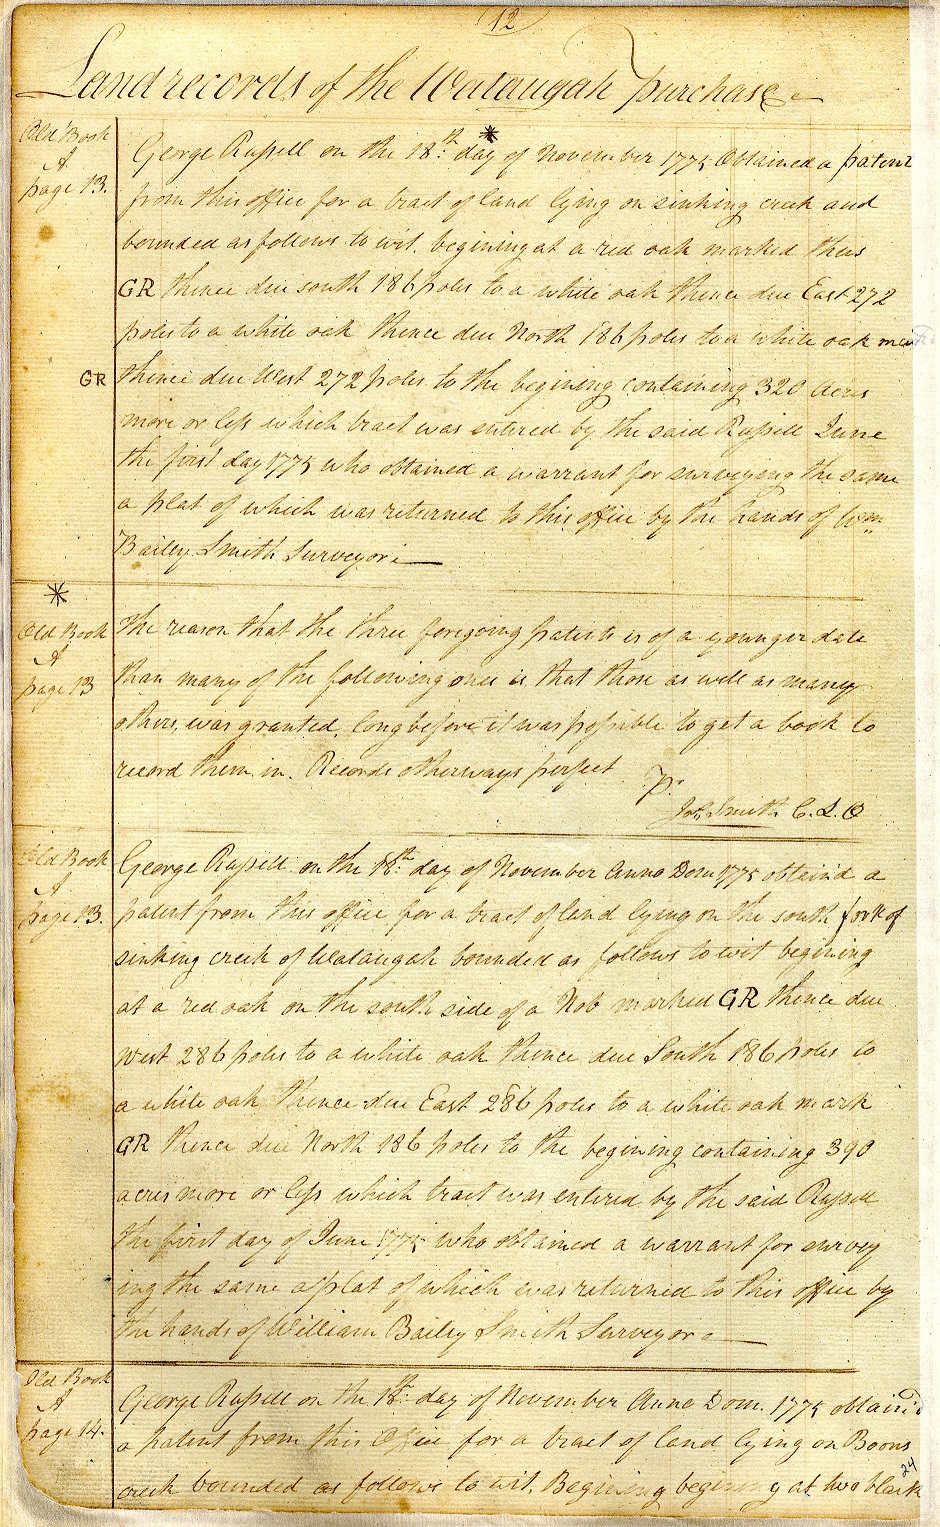 12
Land records of the Wataugah purchase
Old Book
A
page 13.
George Russell on the 18th day of November 1775 Obtained a patent
from this office for a tract of land lying on sinking creek and
bounded as follows to wit. begining at a red oak marked thus
GR thence due south 186 poles to a white oak thence due East 272
poles to a white oak thence due North 186 poles to a white oak
GR
thence due West 272 poles to the begining containing 320 acres
more or less which tract was entered by the said Russell June
the first day 1775 who obtained a warrant for surveying the same
a plat of which was returned to this office by the hands of Wm
Bailey Smith Surveyor
*
Old Book
A
page 13
The reason that the three foregoing patents is of a younger date
than many of the following ones is, that those as well as many
others, was granted, long before it was possible to get a book to
record them in. Records otherways perfect
Pr
Jas. Smith C. L. O
Old Book
A
page 13.
George Russell on the 18th day of November Anno Dom 1775 obtain'd a
patent from this office for a tract of land lying on the south fork of
sinking creek of Wataugah bounded as follows to wit begining
at a red oak on the south side of a Nob marked GR thence due
West 286 poles to a white oak thence due South 186 poles to
a white oak thence due East 286 poles to a white oak mark
GR thence due North 186 poles to the begining containing 390
acres more or less which tract was entered by the said Russell
the first day of June 1775 who obtained a warrant for survey
ing the same a plat of which was returned to this office by
the hands of William Bailey Smith Surveyor
Old Book
A
page 14.
George Russell on the 18th day of November Anna Dom. 1775 obtain'd
a patent from this Office for a tract of land lying on Boons
creek bounded as follows to wit. Begining begining at two black
24